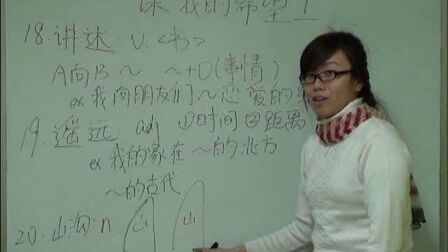 课 我的希望
18.讲述 v. <书>
A向B~ ~+O(事情)
ex 我向朋友们~恋爱的
19.遥远 adj ①时间 ②距离
ex 我的家在~的北方
~的古代
20.山沟 n. 山 山